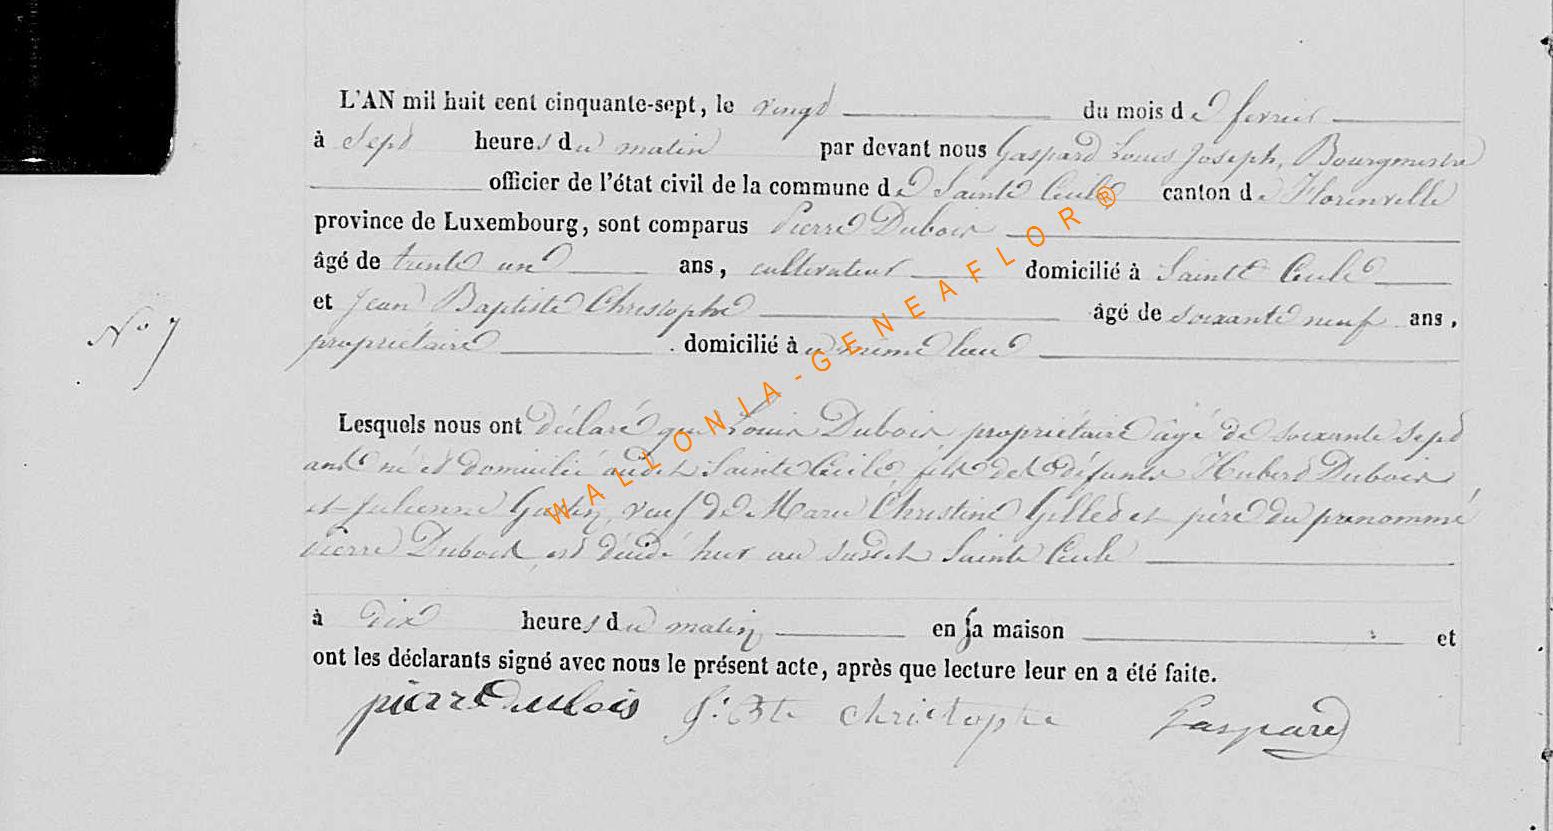 L'AN mil huit cent cinquante-sept, le vingt du mois de fevrier
à sept heures du matin par devant nous Gaspard Louis Joseph, Bourgmestre
officier de l'état civil de la commune de Sainte Cecile canton de Florenville
province de Luxembourg, sont comparus Pierre Dubois
âgé de trente un ans, cultivateur domicilié à Sainte Cecile
et Jean Baptiste Christophe âgé de soixante neuf ans,
N° 7
propriétaire domicilié à u meme lieu
Lesquels nous ont déclaré que Louis Dubois propriétaire âgé de soixante sept
ans né et domicilié audit Sainte Cécile, fils des défunts Hubert Dubois
et Julienne veuf de Marie Christine Gilles et père du prenommé
Pierre Dubois, est décédé hier au susdit Sainte Cecile
à dix heures du matin en sa maison et
ont les déclarants signé avec nous le présent acte, après que lecture leur en a été faite.
pierre Dubois J. Bte christophe Gaspard
WALLONIA-GENEAFLOR®